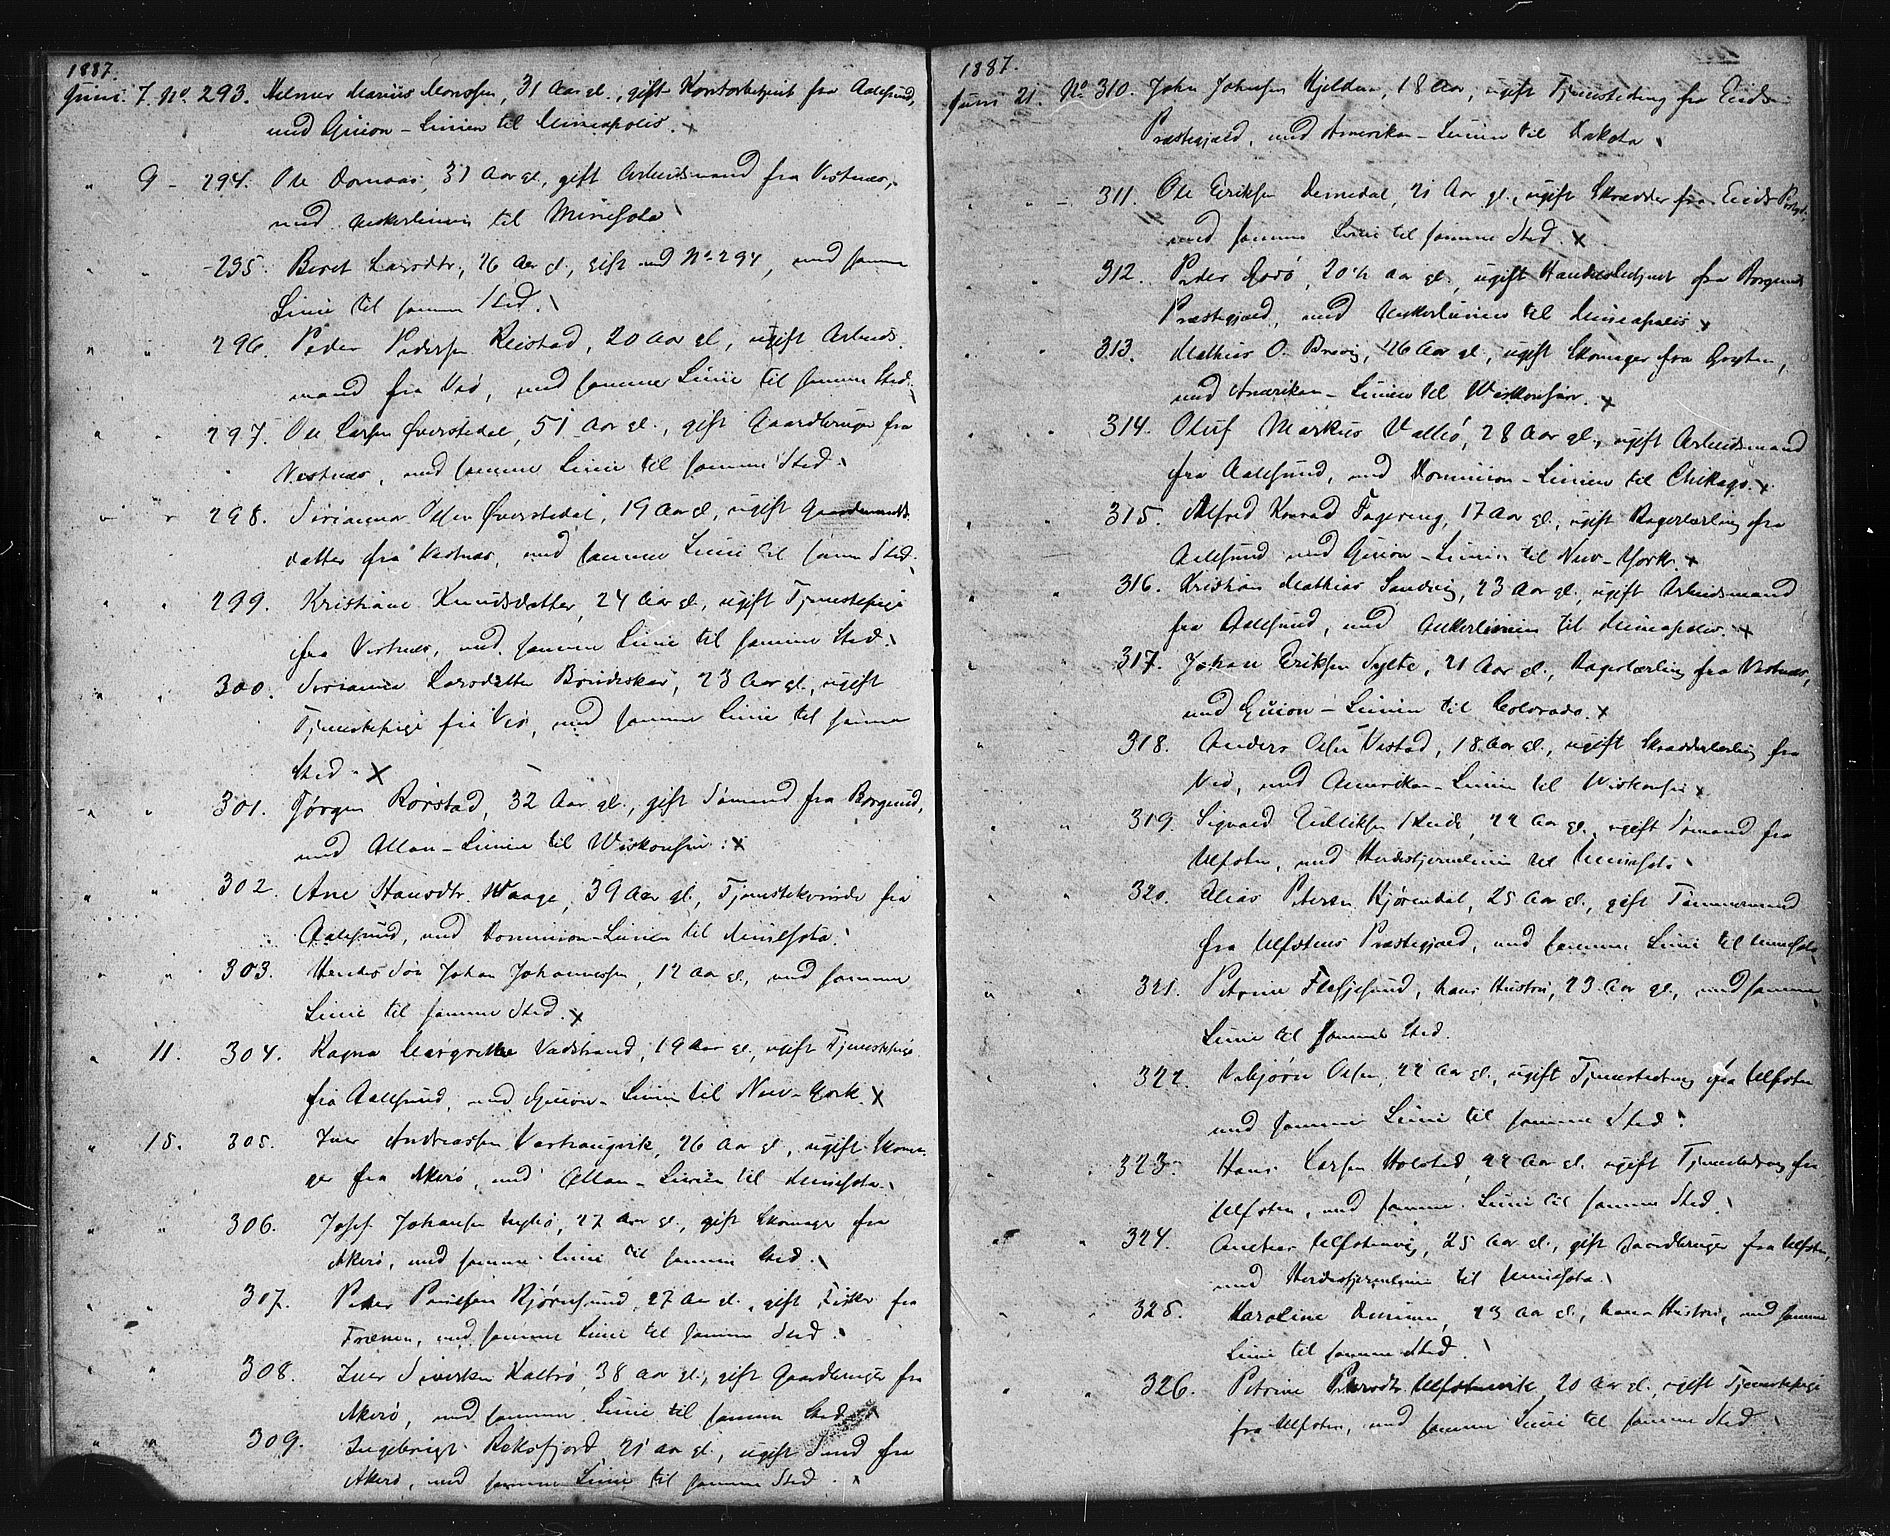 1887.
Juni. 7. No. 293. Helmer Marius Monssen, 31 Aar gl., gift Kontorbetjent fra Aalesund,
med Guion-Linien til Mineapolis.
" 9 - 294. Ole Domaas, 31 Aar gl., gift Arbeidsmand fra Vestnæs,
med Ankerlinien til Minesota
" " - 295. Beret Larsdtr, 26 Aar gl., gift med No 294, med samme
Linie til samme Sted.
" " 296. Peder Pedersen Reistad, 20 Aar gl., ugift Arbeids
mand fra Veø, med samme Linie til samme Sted.
" " 297. Ole Larsen Øverstedal, 51 Aar gl., gift Gaardbruger fra
Vestnæs, med samme Linie til samme Sted.
" " 298. Sirianna Olsen Øverstedal, 19 Aar gl., ugift Gaardmands
datter fra Vestnæs, med samme Linie til samme Sted.
" " 299. Kristiane Knudsdatter, 24 Aar gl., ugift Tjenestepige
fra Vestnæs, med samme Linie til samme Sted.
" " 300. Sirianna Larsdatter, 23 Aar gl., ugift
Tjenestepige fra Veø, med samme Linie til samme
Sted. x
" " 301. Jørgen Rørstad, 32 Aar gl., gift Sømand fra Borgund,
med Allan-Linien til Wiskonsin. x
" " 302. Ane Hansdtr. Waage, 39 Aar gl., Tjenestekvinde fra
Aalesund, med Dominion-Linien til Minesota.
" " 303. Hendes Søn Johan Johannessen, 12 Aar gl., med samme
Linie til samme Sted. x
" 11. 304. Ragna Margrethe Vadstrand, 19 Aar gl., ugift Tjenestepige
fra Aalesund, med Guion-Linien til New-York. x
" 15. 305. Iver Andreassen, 26 Aar gl., ugift Skoma-
ger fra Akerø, med Allan-Linien til Minesota.
" " 306. Josef Johansen, 27 Aar gl., gift Skomager fra
Akerø, med samme Linie til samme Sted.
" " 307. Peder Paulsen Bjørnsund, 27 Aar gl., gift Fisker fra
Frænen, med samme Linie til samme Sted.
" " 308. Iver Sivertsen, 38 Aar gl., gift Gaardbruger fra
Akerø, med samme Linie til samme Sted.
" " 309. Ingebrigt, 21 Aar gl., ugift fra
Akerø, med samme Linie til samme Sted. x
1887.
Juni 21. No 310. John Johnsen Hjeldnes, 18 Aar, ugift Tjenestedreng fra Eids
Præstegjæld, med Amerikan-Linien til Dakota
" " - 311. Ole Eriksen, 21 Aar gl., ugift Skrædder fra Eids Præstegd.
med samme Linie til samme Sted. x
" " 312. Peder Godø, 20½ Aar gl., ugift Handelsbetjent fra Borgunds
Præstegjæld, med Ankerlinien til Mineapolis. x
" " 313. Mathias O. Brevig, 26 Aar gl., ugift Skomager fra Grytten,
med Amerikan-Linien til Wiskonsin. x
" " 314. Oluf Markus Valkø, 28 Aar gl., ugift Arbeidsmand
fra Aalesund, med Dominion-Linien til Chikago. x
" " 315. Alfred Konrad Fagereng, 17 Aar gl., ugift Bagerlærling fra
Aalesund med Guion-Linien til New-York. x
" " 316. Kristian Mathias Sandvig, 23 Aar gl., ugift Arbeidsmand
fra Aalesund, med Ankerlinien til Mineapolis. x
" " 317. Johan Eriksen Sylte, 21 Aar gl., Bagerlærling fra Vestnæs,
med Guion-Linien til Colorado. x
" " 318. Anders Olsen Vestad, 18 Aar gl., ugift Skrædderlærling fra
Veø, med Amerikan-Linien til Wiskonsin x
" " 319. Sigvald, 22 Aar gl., ugift Sømand fra
Ulfsten, med Hvidestjernelinien til Minesota
" " 320. Elias Petersen Kjørendal, 25 Aar gl., gift Tømmermand
fra Ulfstens Præstegjæld, med samme Linie til Minesota
" " 321. Petrine Flusjesund, hans Hustru, 23 Aar gl., med samme
Linie til samme Sted.
322. Vebjørn Olsen, 22 Aar gl., ugift Tjenestedreng fra Ulfsten
med samme Linie til samme Sted.
" " 323. Hans Larsen Holstad, 22 Aar gl. ugift Tjenestedreng fra
Ulfsten, med samme Linie til samme Sted.
" " 324. Andreas Ulfstenvig, 25 Aar gl., gift Gaardbruger fra Ulfsten,
med Hvidestjernelinien til Minesota.
" " 325. Karoline, 23 Aar gl., hans Hustru, med samme
Linie til samme Sted.
" " 326. Petrine Pedersdtr Ulfstenvik 20 Aar gl., ugift Tjenestepige
fra Ulfsten, med samme Linie til samme Sted